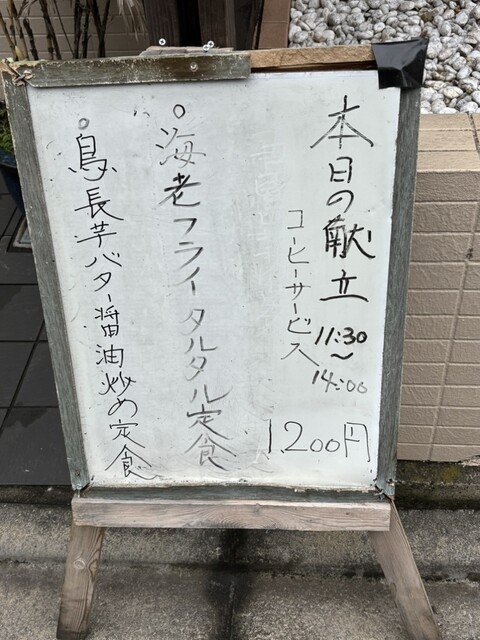 本日の献立
11:30
〜
14:00
コーヒーサービス
1200円
○海老フライータルタル定食
○鳥長芋バター醤油炒め定食